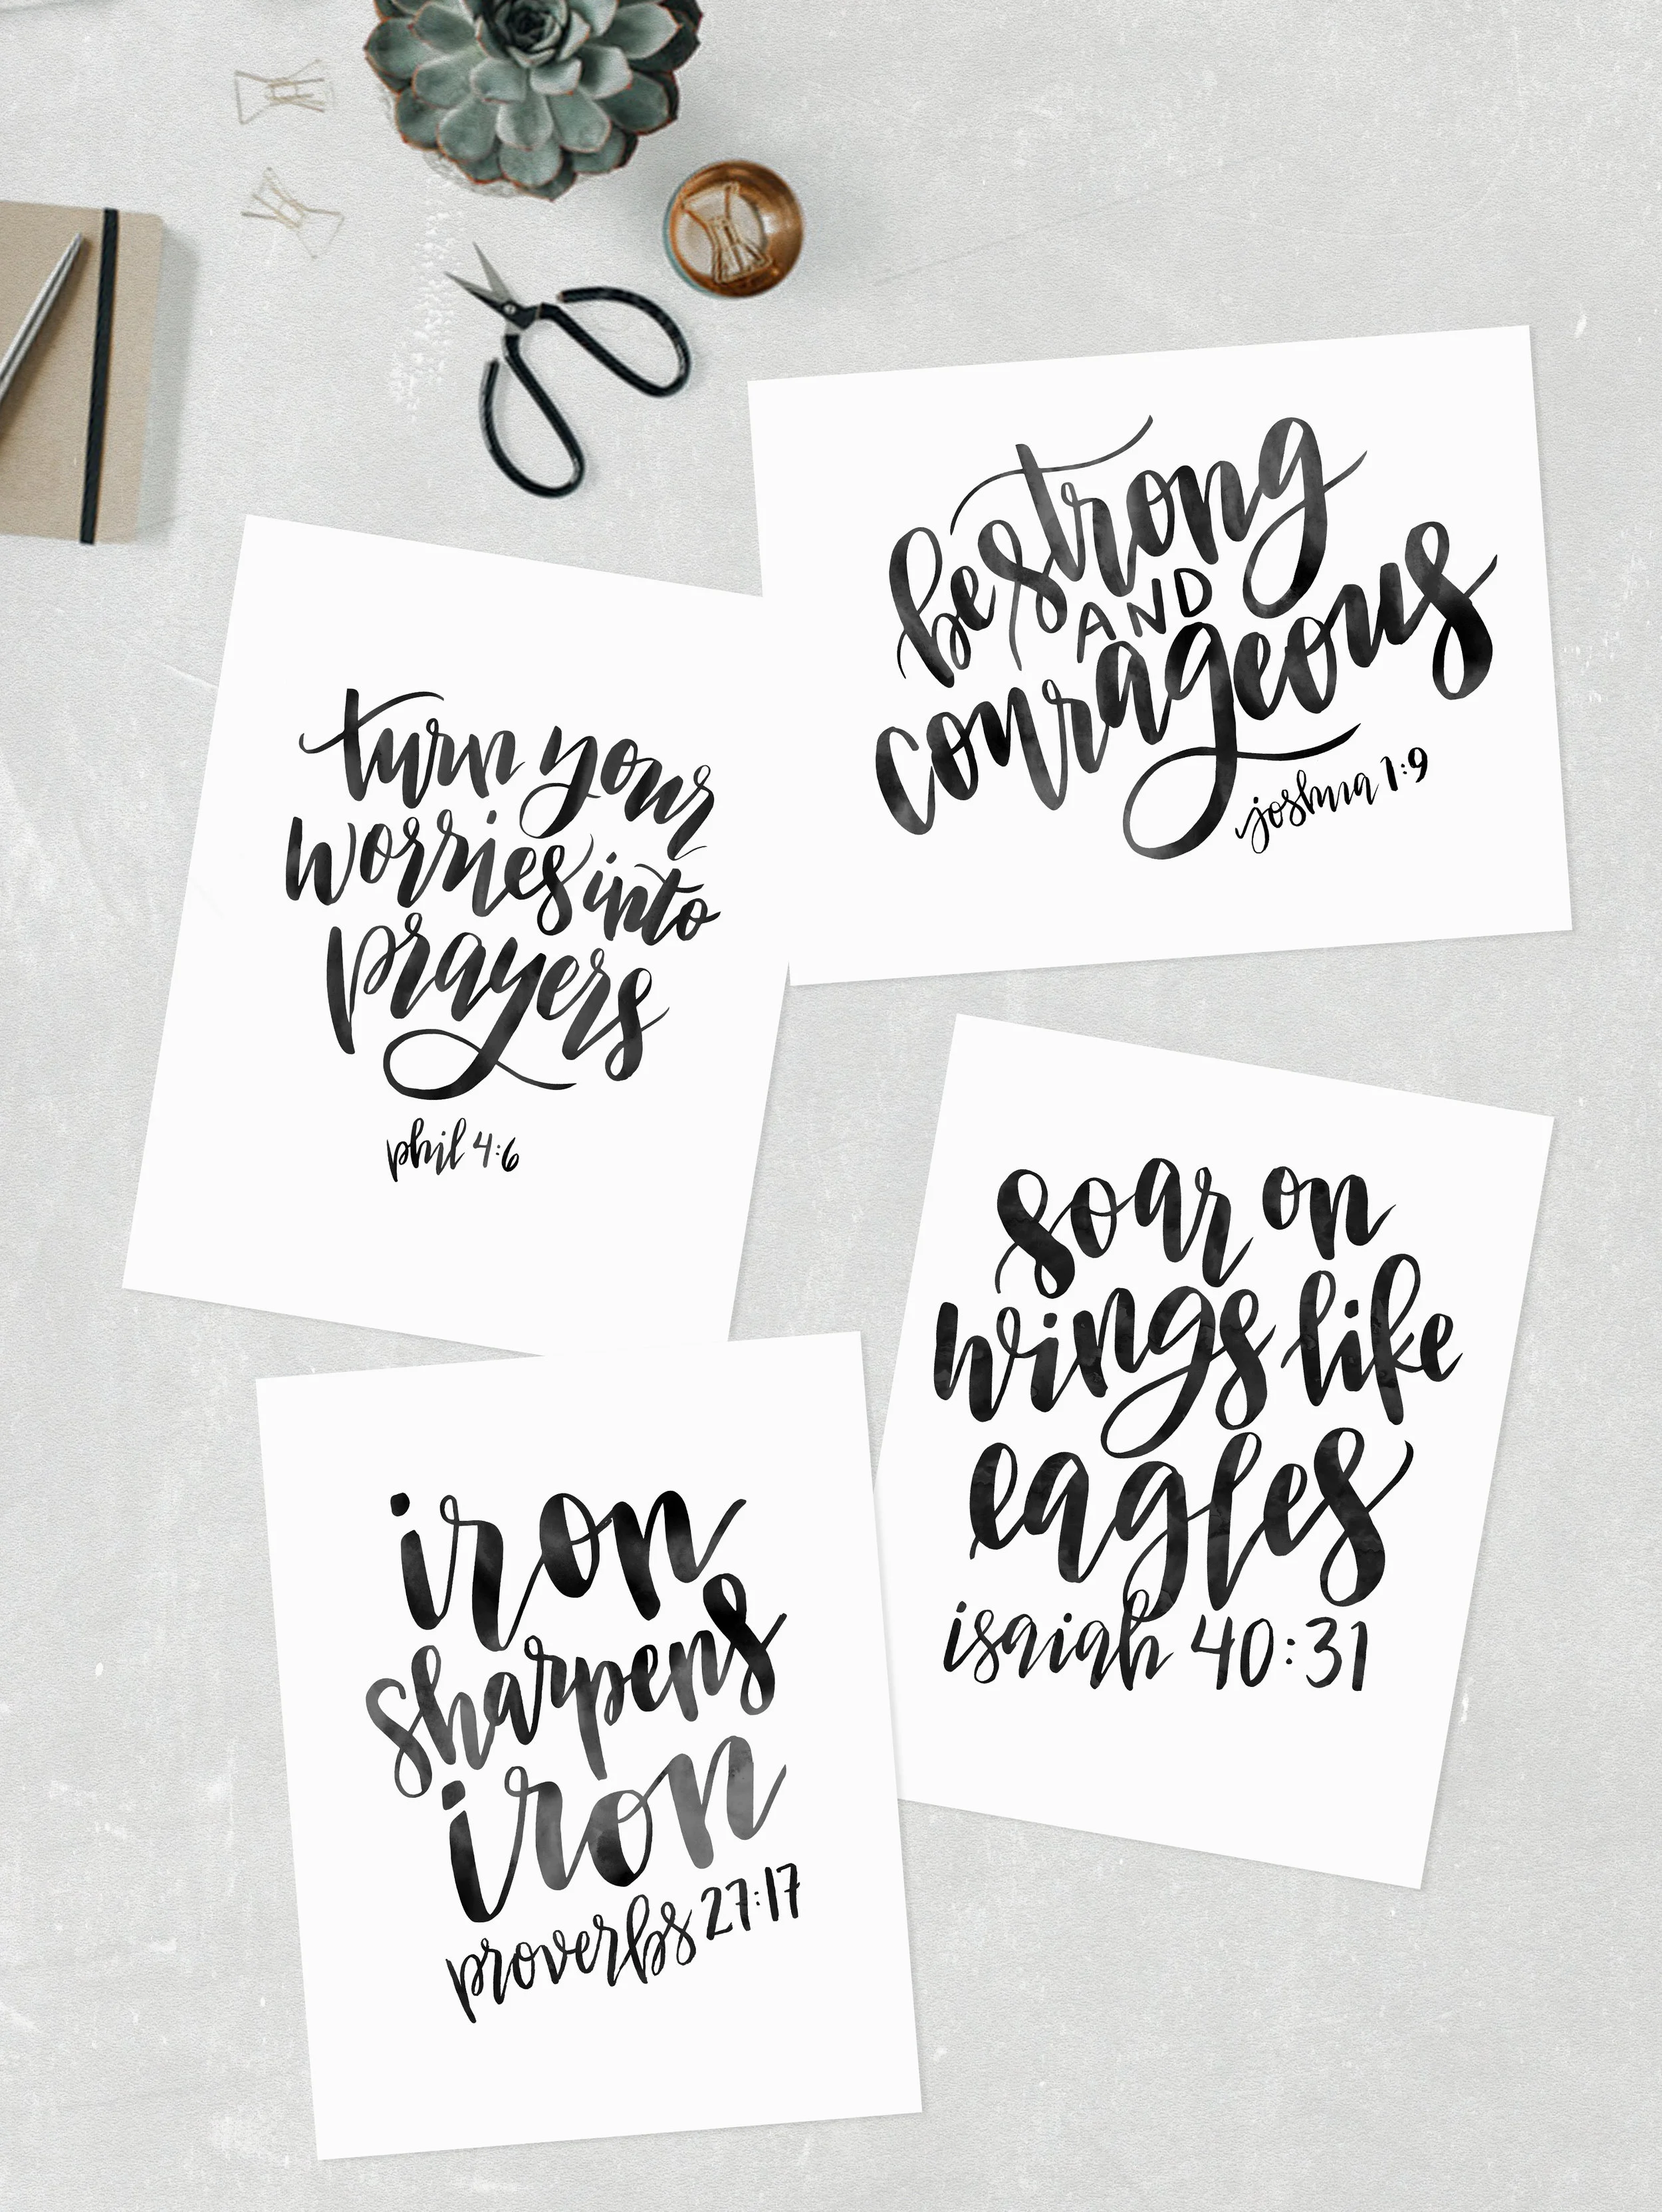 be strong
AND
courageous
joshua 1:9
turn your
worries into
prayers
phil 4:6
soar on
wings like
eagles
isaiah 40:31
iron
sharpens
iron
proverbs 27:17